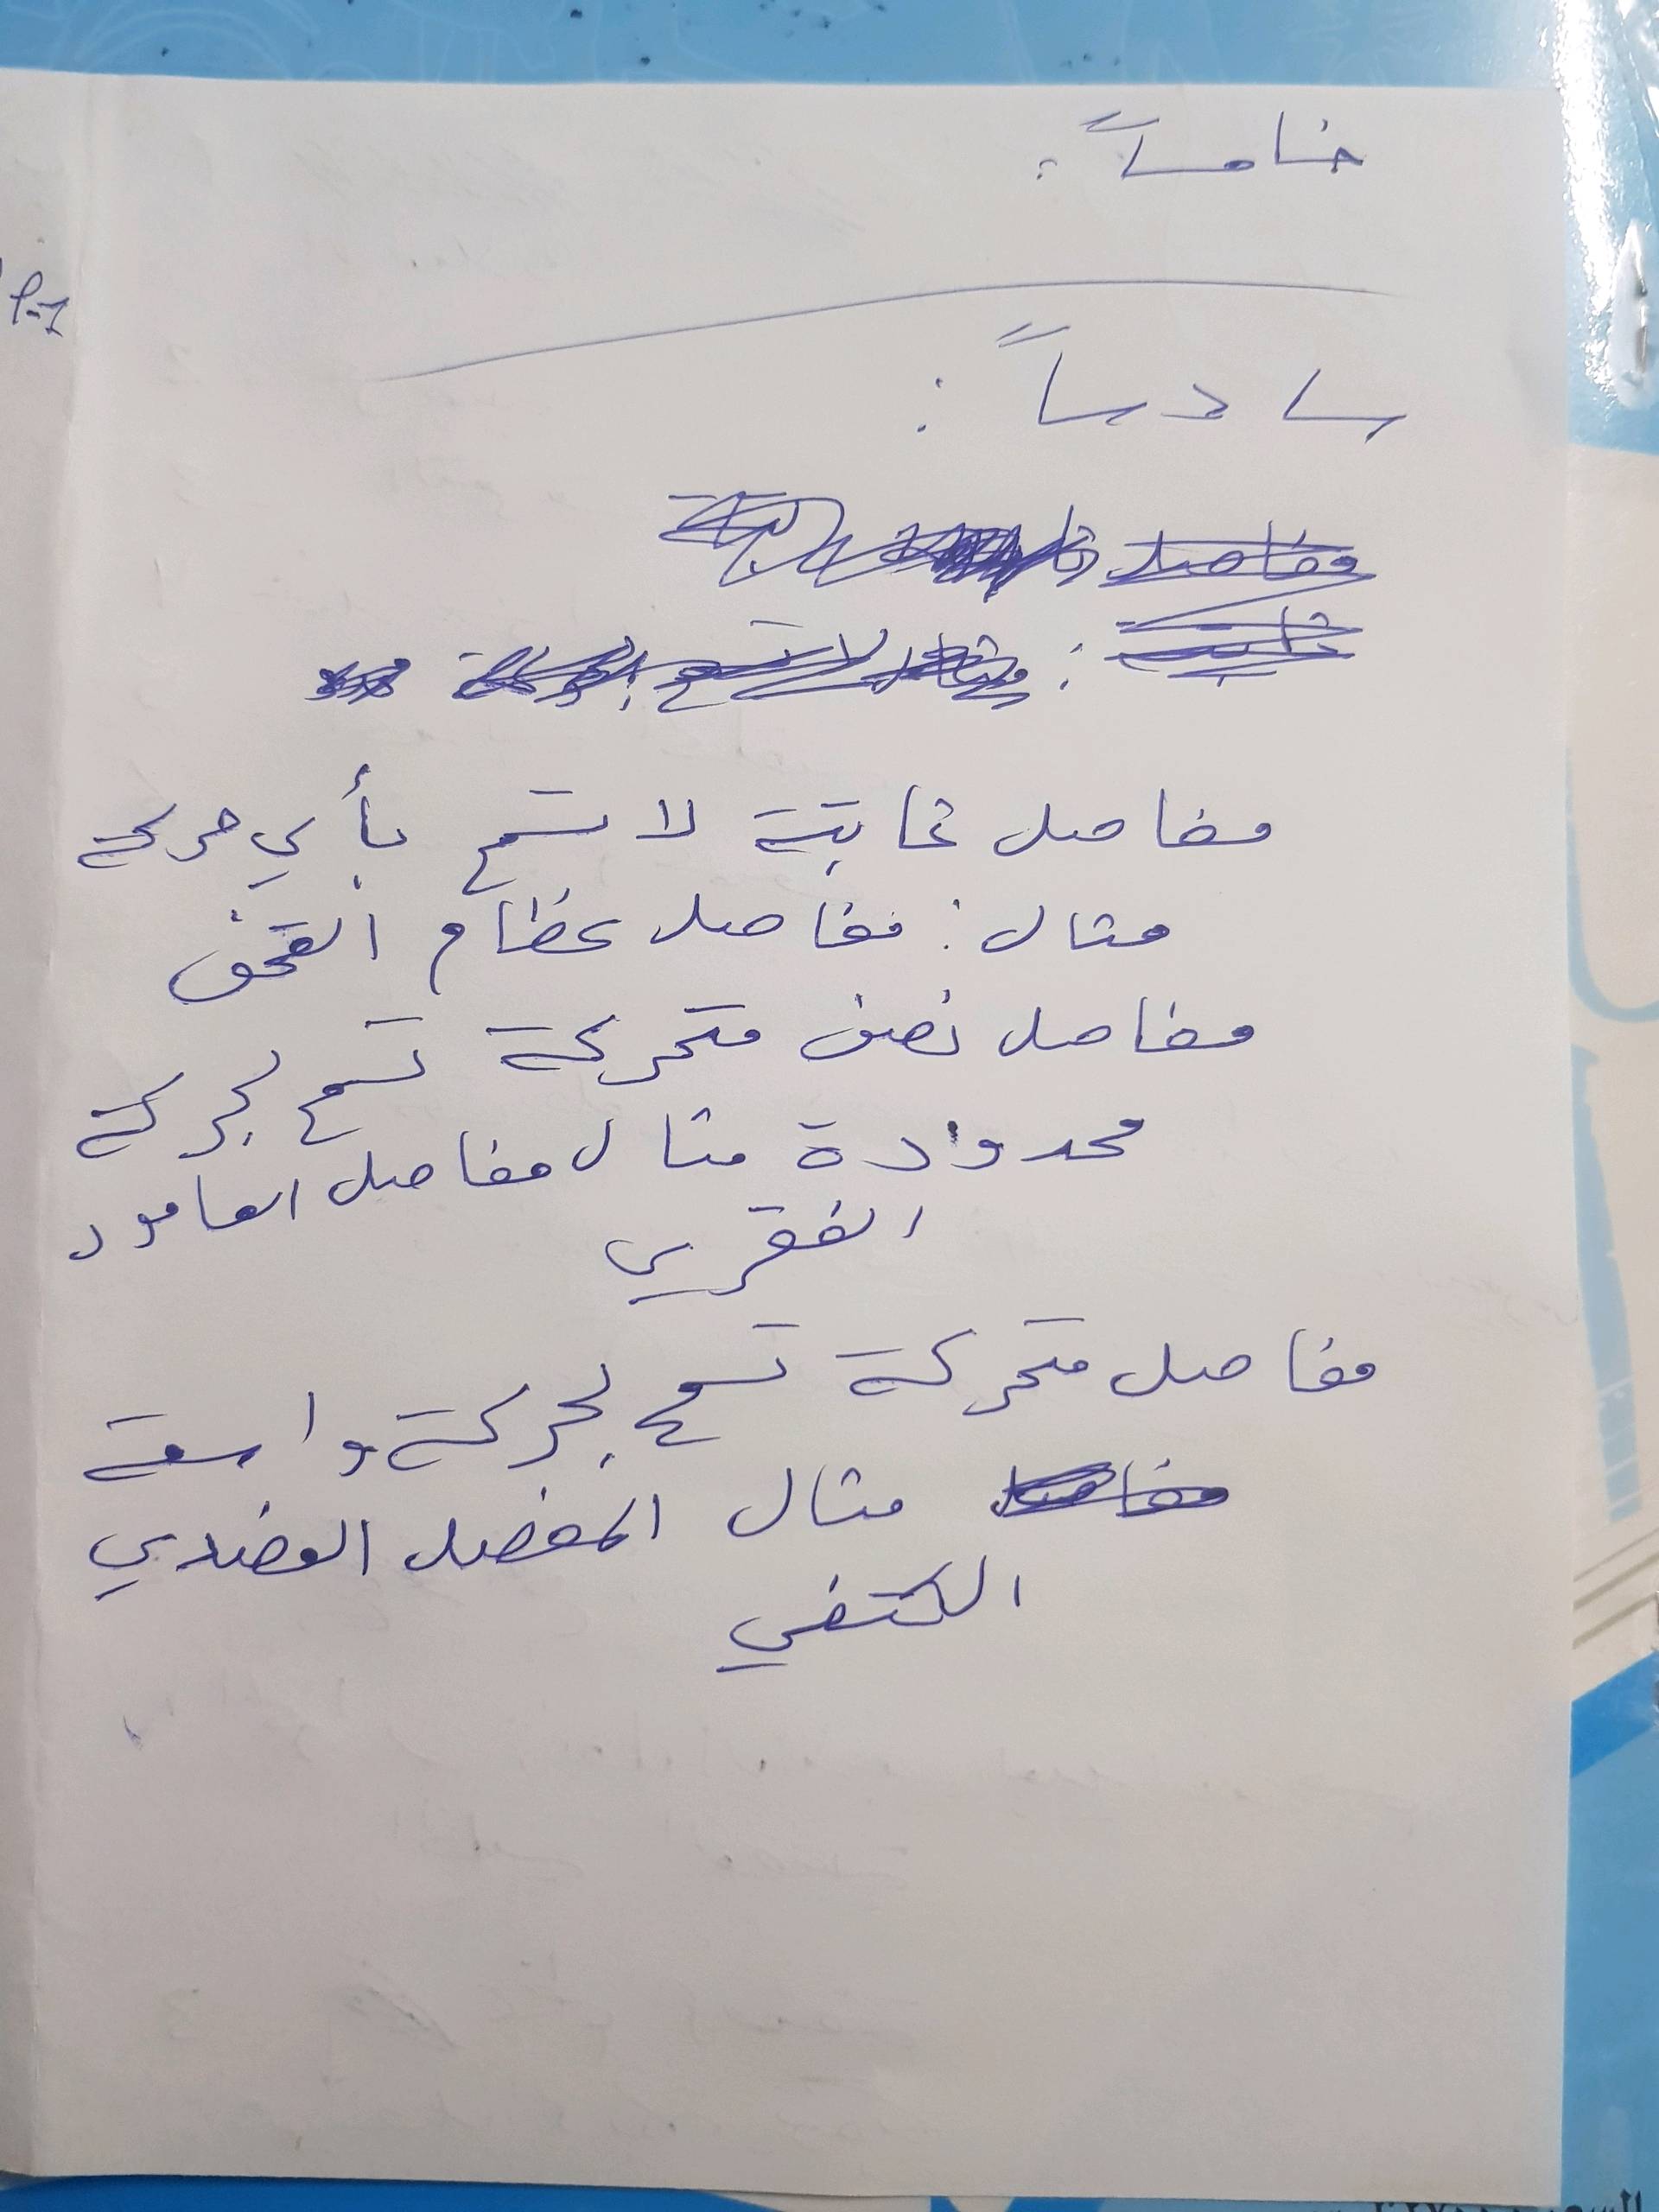 خامساً:
سادساً:
مفاصل
ثابتة: مثال لا تسمح
مفاصل ثابتة لا تسمح بأي حركة
مثال: مفاصل عظام القحف
مفاصل نصف متحركة تسمح بحركة
محدوادة مثال مفاصل العامود
الفقري
مفاصل متحركة تسمح بحركة واسعة
مفاصل مثال المفصل العضدي
الكتفي